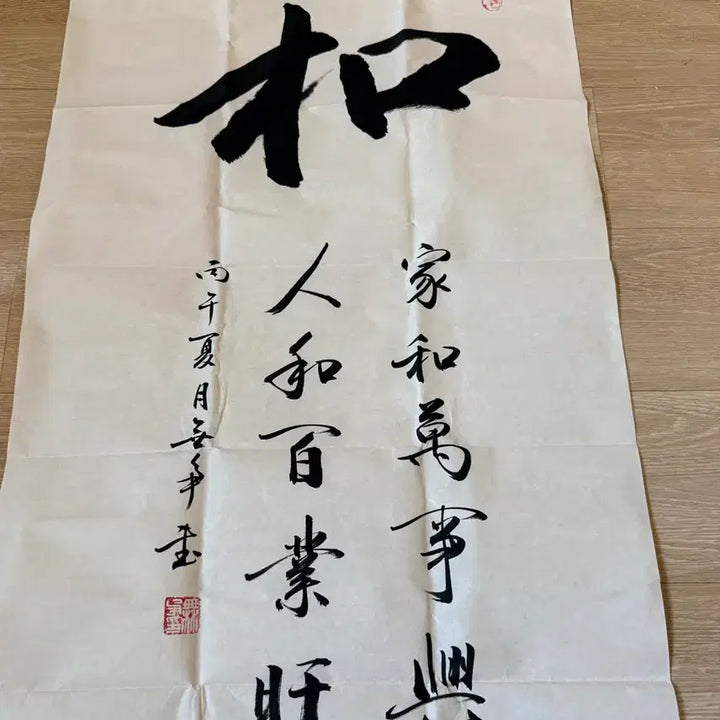 和
家和萬事興
人和百業旺
丙午夏月無爭書